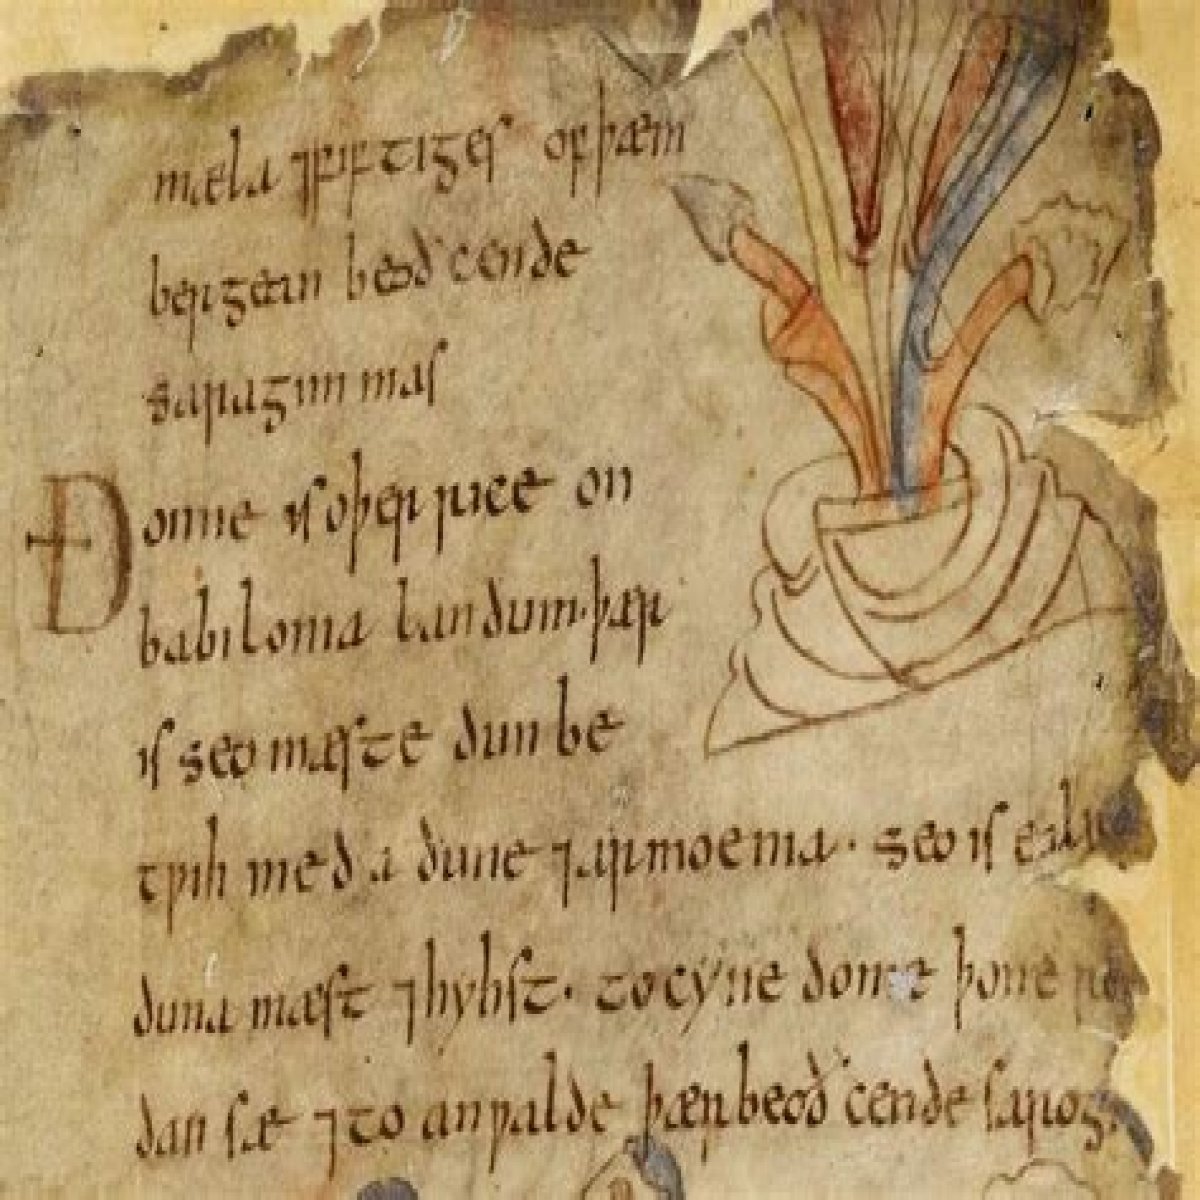 mæla ⁊ fiftiges of þæm
bergean beoð cende
saragim mas
Ðonne is oþer rice on
babilonia landum· þær
is seo mæste dun be
tƿih meda dune ⁊ armoenia· seo is ealra
duna mæst ⁊ hyhst· to cyne dome þone
dan sæ ⁊ to anƿalde þær beoð cende